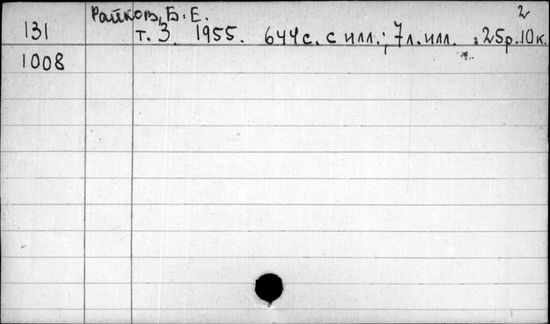 Райков, Б. Е. 2
131 т. 3. 1955. 644 с. с илл.; 7 л. илл. 25р. 10к.
1008